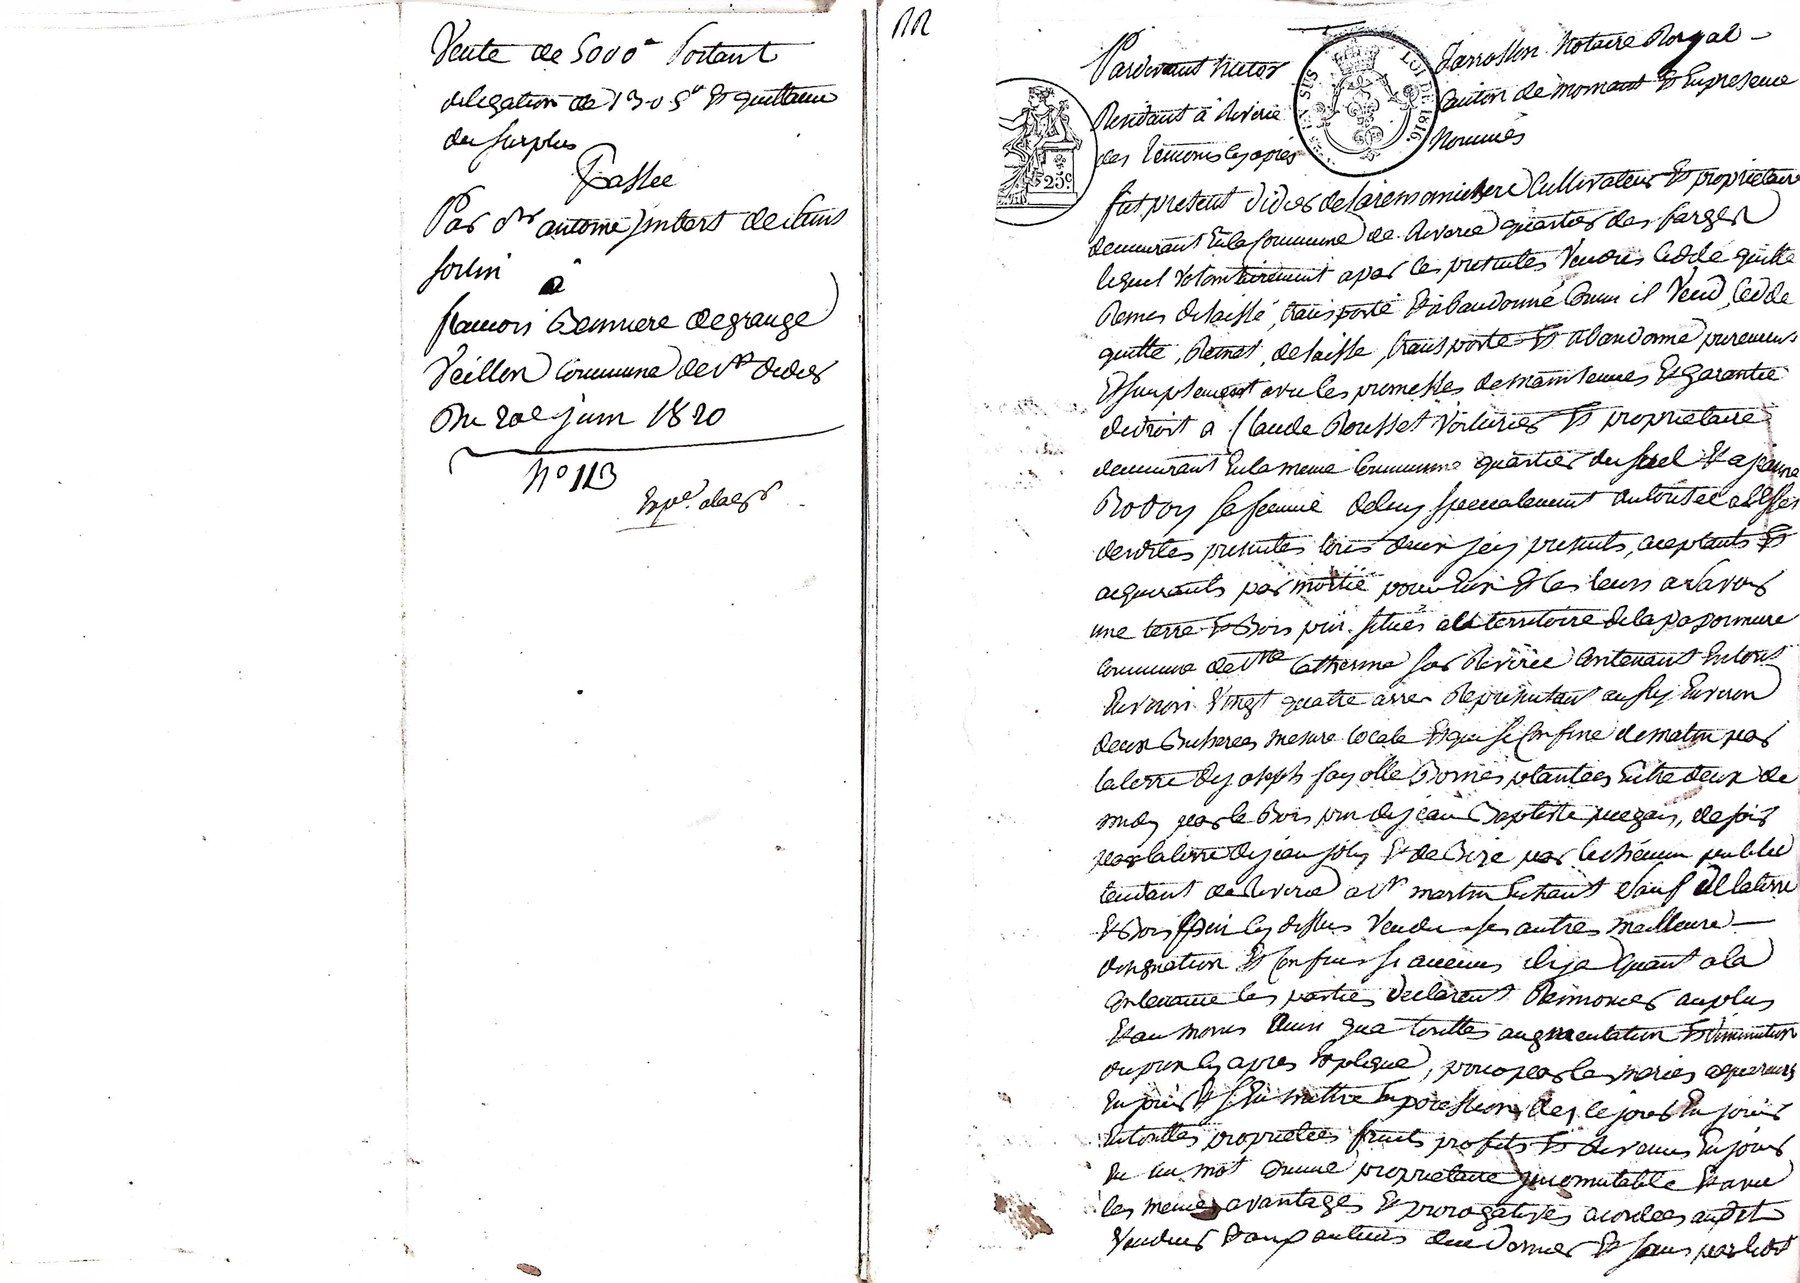 Vente de 5000 portant
délégation de 1305 et quittance
du surplus
Passée
Par Sr antoine Imbert de
à
françois degrange
commune de St didier
Du 20e juin 1820
No 113
Pardevant Notaire Royal
Résident à Riverie canton de mornant et En présence
des témoins cy après Nommés
EN SUS LOI DE 1816
25c
fut présent didier Cultivateur et propriétaire
demeurant En la Commune de Riverie quartier des farges
lequel volontairement a par ces présentes Vendu Cédé quitté
Remis délaissé, transporté et abandonné Comme il Vend, Cède
quitte, Remet, délaisse, transporte et abandonne purement
et simplement avec les promesses de maintenues et garantie
de droit a Claude Rousset Voiturier et propriétaire
demeurant En la meme Commune quartier du et a jeanne
sa femme de luy spécialement autorisée
desdites présentes tous deux icy présents, aceptants et
acquerants par moitié pour Eux et les leurs a savoir
une terre et Bois pin situés au territoire de la
commune de Ste Catherine sur Riverie Contenant En tout
Environ Vingt quatre ares Représentant aussy Environ
deux Bicherees mesure locale et qui se Confine de matin par
la terre de joseph fayolle Bornes plantées Entre deux de
midy par le Bois pin de jean Baptiste de soir
par la terre de jean joly et de Bize par le chemin public
tendant de Riverie a St martin En haut sauf de la terre
et Bois pin cy dessus Vendu ses autres meilleure
désignation et Confins si aucuns il y a quant a la
Contenance les parties déclarent Renoncer au plus
et au moins ainsi qua toutes augmentation et diminution
du prix cy après Expliqué, pour par les mariés aquereurs
En jouir et s'En mettre En possession des ce jour En jouir
En toutes propriétés fruits profits et Revenus En jouir
En un mot Comme propriétaire incommutable et avec
les memes avantages et prérogatives acordées audit
Vendeur et aux auteurs de ce dernier et sans par luy